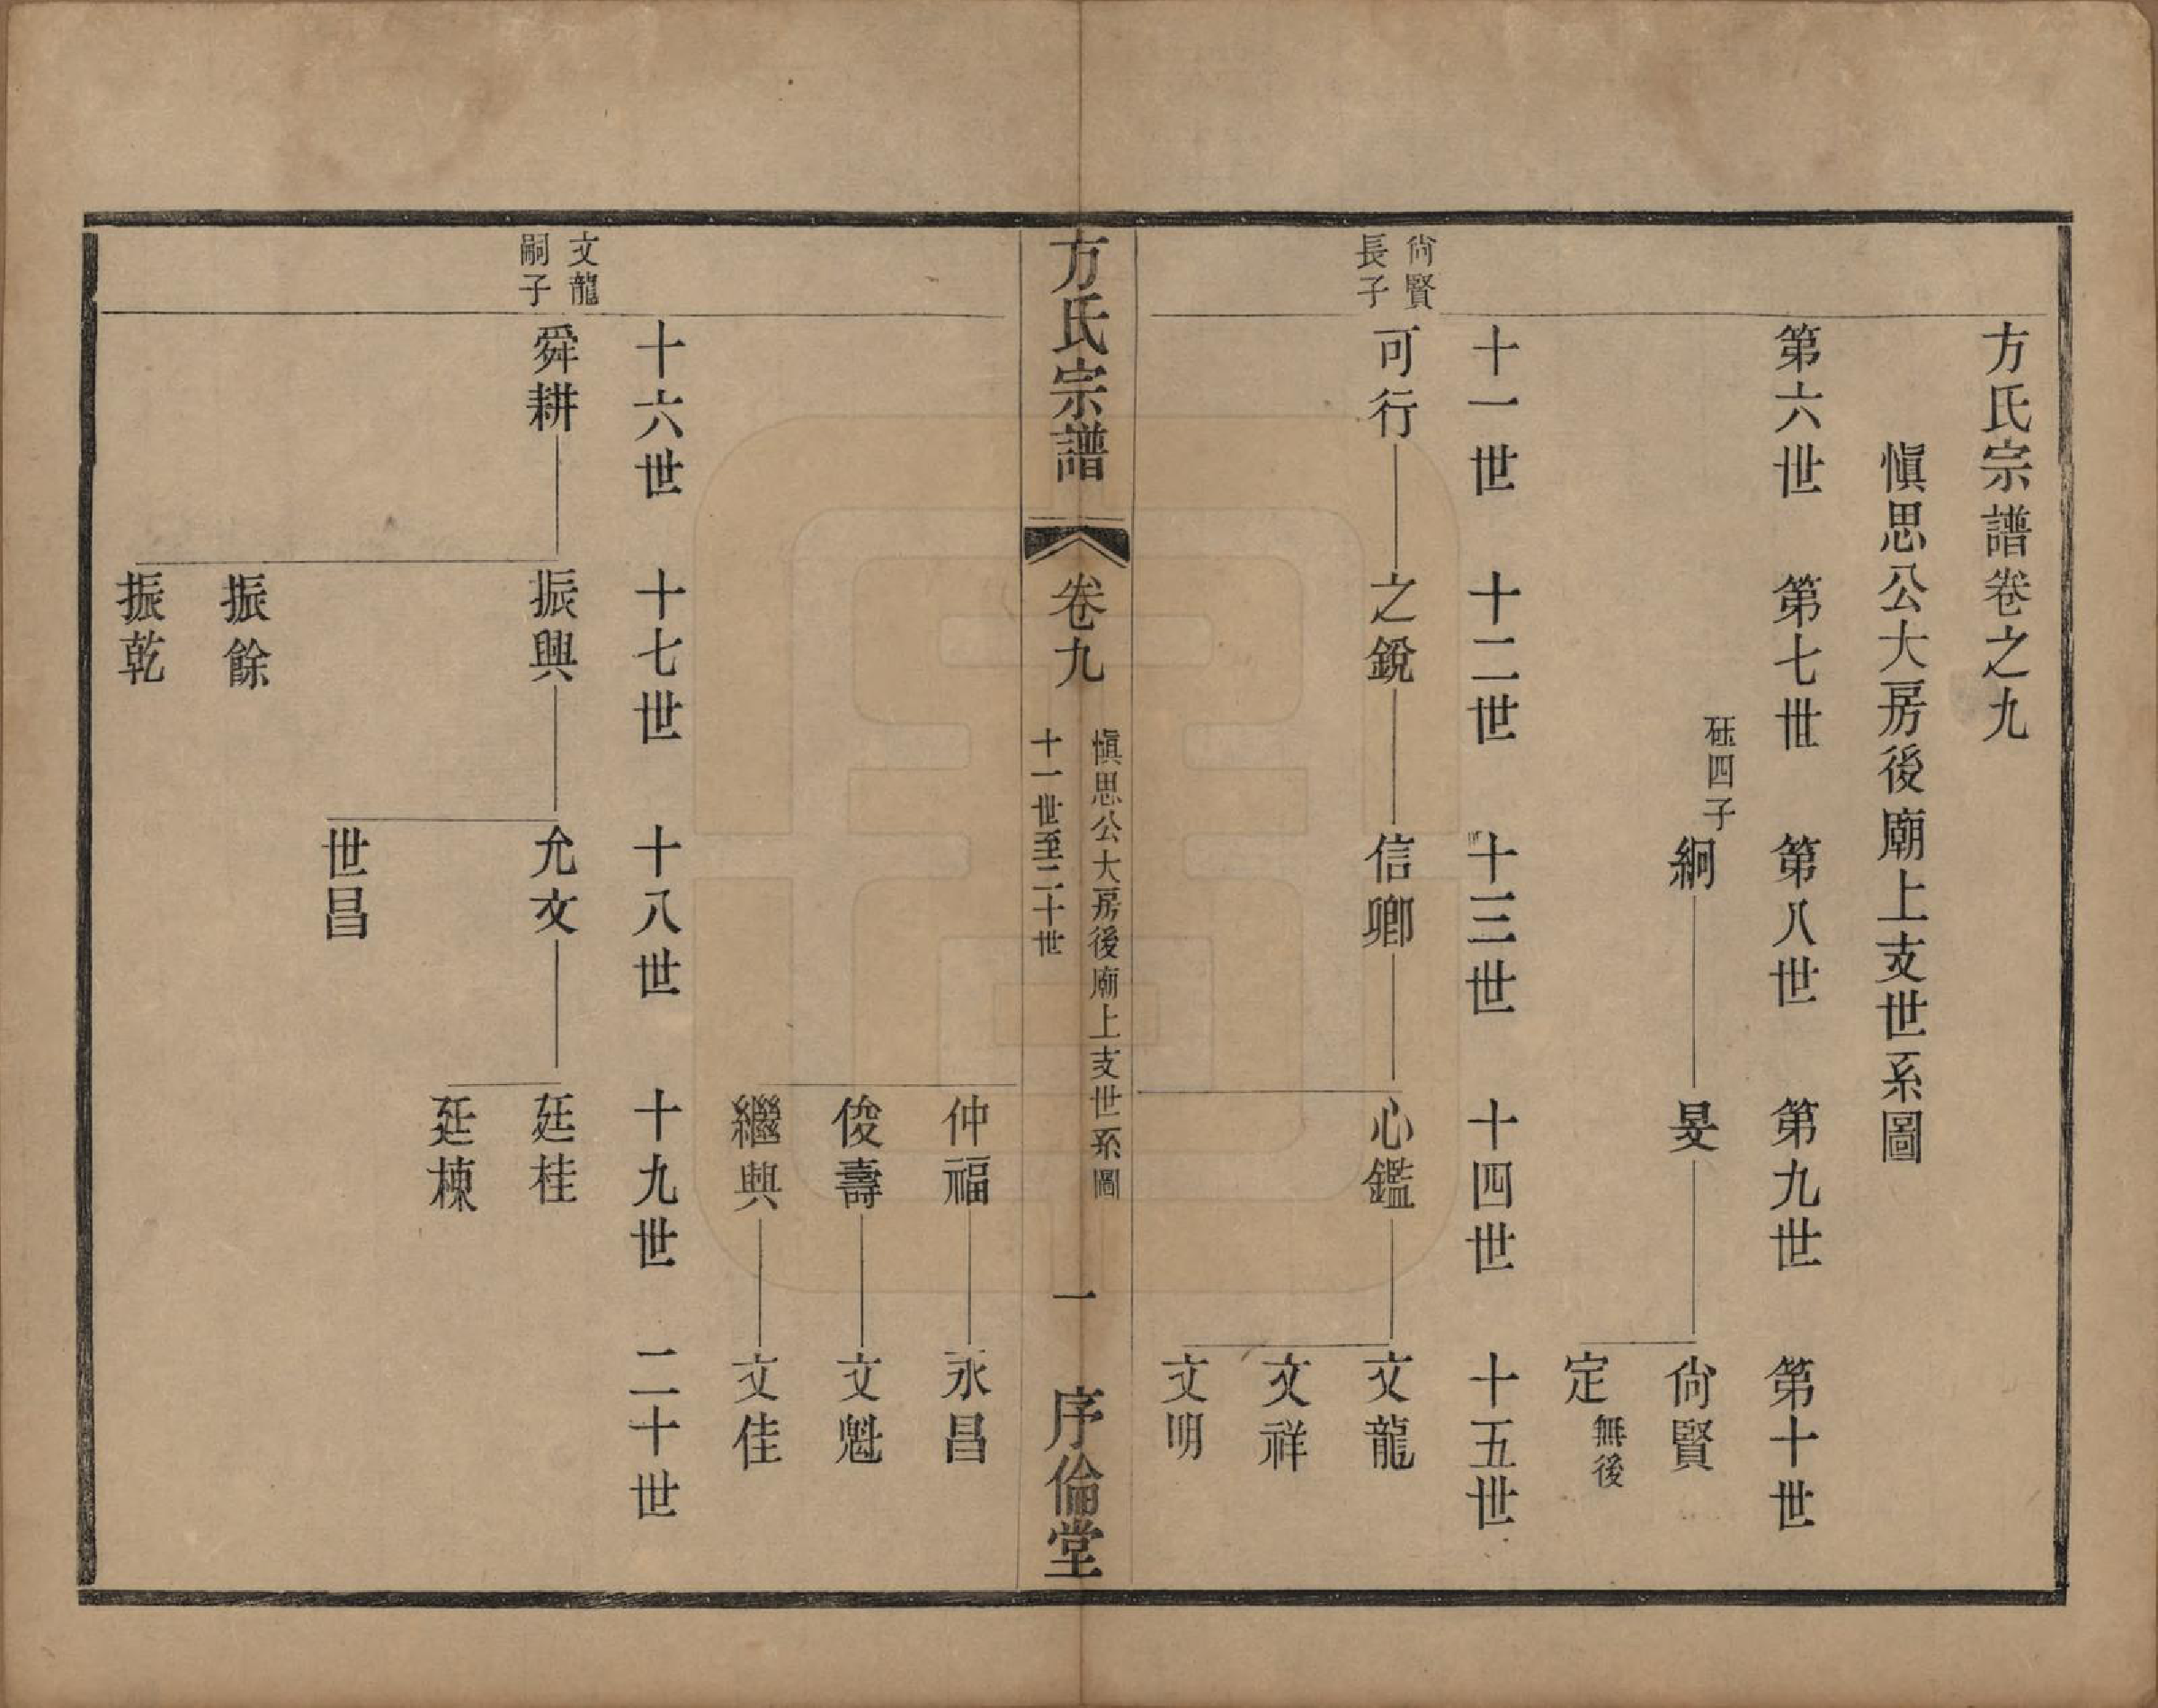 方氏宗譜卷之九
愼思公大房後廟上支世系圖
第六世 第七世 第八世 第九世 第十世
砡四子
絅 旻 尙賢
定 無後
十一世 十二世 十三世 十四世 十五世
尙賢
長子
可行 之銳 信卿 心鑑 文龍
文祥
文明
方氏宗譜 卷九 愼思公大房後廟上支世系圖
十一世至二十世
一 序倫堂
仲福 永昌
俊壽 文魁
繼興 文佳
十六世 十七世 十八世 十九世 二十世
文龍
嗣子
舜耕 振興 允文 廷桂
廷棟
世昌
振餘
振乾